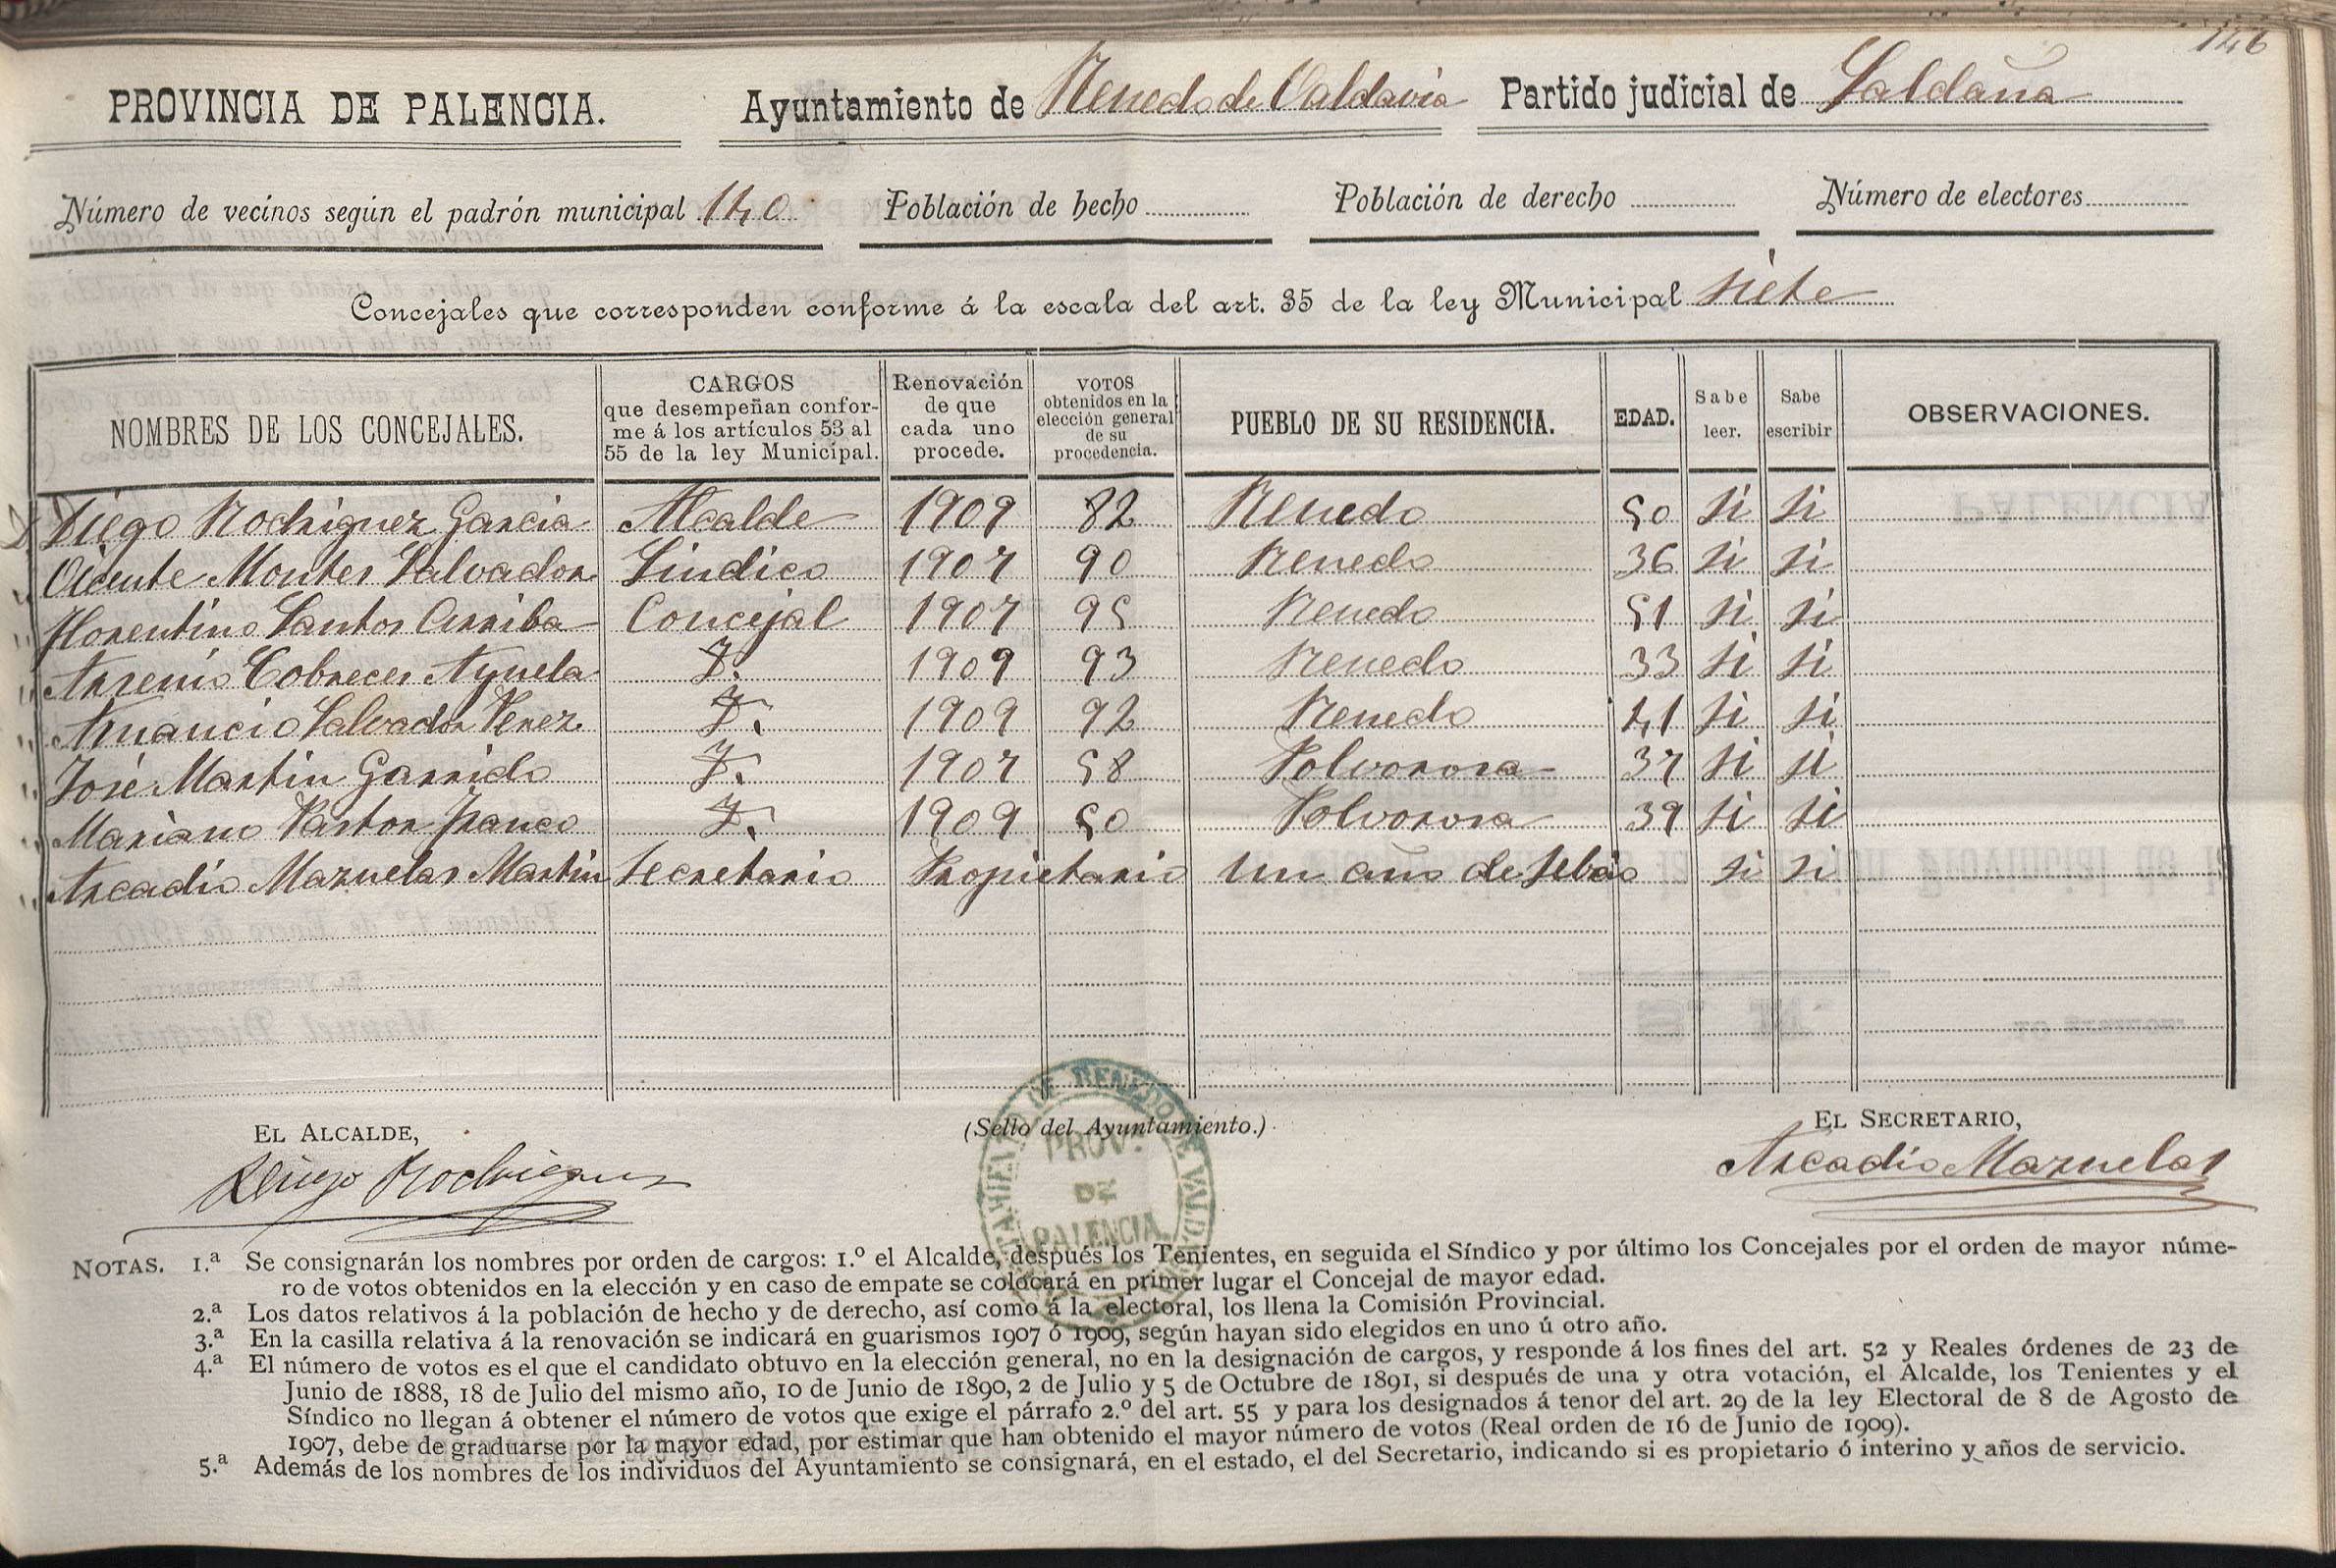 146
PROVINCIA DE PALENCIA. Ayuntamiento de Renedo de Valdavia Partido judicial de Saldaña
Número de vecinos según el padrón municipal 140 Población de hecho Población de derecho Número de electores
Concejales que corresponden conforme á la escala del art. 35 de la ley Municipal siete
NOMBRES DE LOS CONCEJALES. CARGOS que desempeñan confor- me á los artículos 53 al 55 de la ley Municipal. Renovación de que cada uno procede. VOTOS obtenidos en la elección general de su procedencia. PUEBLO DE SU RESIDENCIA. EDAD. Sabe leer. Sabe escribir OBSERVACIONES.
D Diego Rodriguez Garcia Alcalde 1909 82 Renedo 50 si si
" Vicente Montes Salvador Sindico 1907 90 Renedo 36 si si
" Florentino Santos Arriba Concejal 1907 95 Renedo 51 si si
" Arsenio Cobreces Ayuela I. 1909 93 Renedo 33 si si
" Amancio Salvador Perez I. 1909 92 Renedo 41 si si
" José Martin Garrido I. 1907 58 Polvorosa 37 si si
" Mariano Pastor Franco I. 1909 50 Polvorosa 39 si si
" Arcadio Mazuelas Martin Secretario Propietario un año de si si
EL ALCALDE, (Sello del Ayuntamiento.) EL SECRETARIO,
Diego Rodriguez Arcadio Mazuelas
AYUNTAMIENTO DE RENEDO DE VALD
PROV.
DE
PALENCIA
NOTAS. 1.ª Se consignarán los nombres por orden de cargos: 1.º el Alcalde, después los Tenientes, en seguida el Síndico y por último los Concejales por el orden de mayor núme-
ro de votos obtenidos en la elección y en caso de empate se colocará en primer lugar el Concejal de mayor edad.
2.ª Los datos relativos á la población de hecho y de derecho, así como á la electoral, los llena la Comisión Provincial.
3.ª En la casilla relativa á la renovación se indicará en guarismos 1907 ó 1909, según hayan sido elegidos en uno ú otro año.
4.ª El número de votos es el que el candidato obtuvo en la elección general, no en la designación de cargos, y responde á los fines del art. 52 y Reales órdenes de 23 de
Junio de 1888, 18 de Julio del mismo año, 10 de Junio de 1890, 2 de Julio y 5 de Octubre de 1891, si después de una y otra votación, el Alcalde, los Tenientes y el
Síndico no llegan á obtener el número de votos que exige el párrafo 2.º del art. 55 y para los designados á tenor del art. 29 de la ley Electoral de 8 de Agosto de
1907, debe de graduarse por la mayor edad, por estimar que han obtenido el mayor número de votos (Real orden de 16 de Junio de 1909).
5.ª Además de los nombres de los individuos del Ayuntamiento se consignará, en el estado, el del Secretario, indicando si es propietario ó interino y años de servicio.